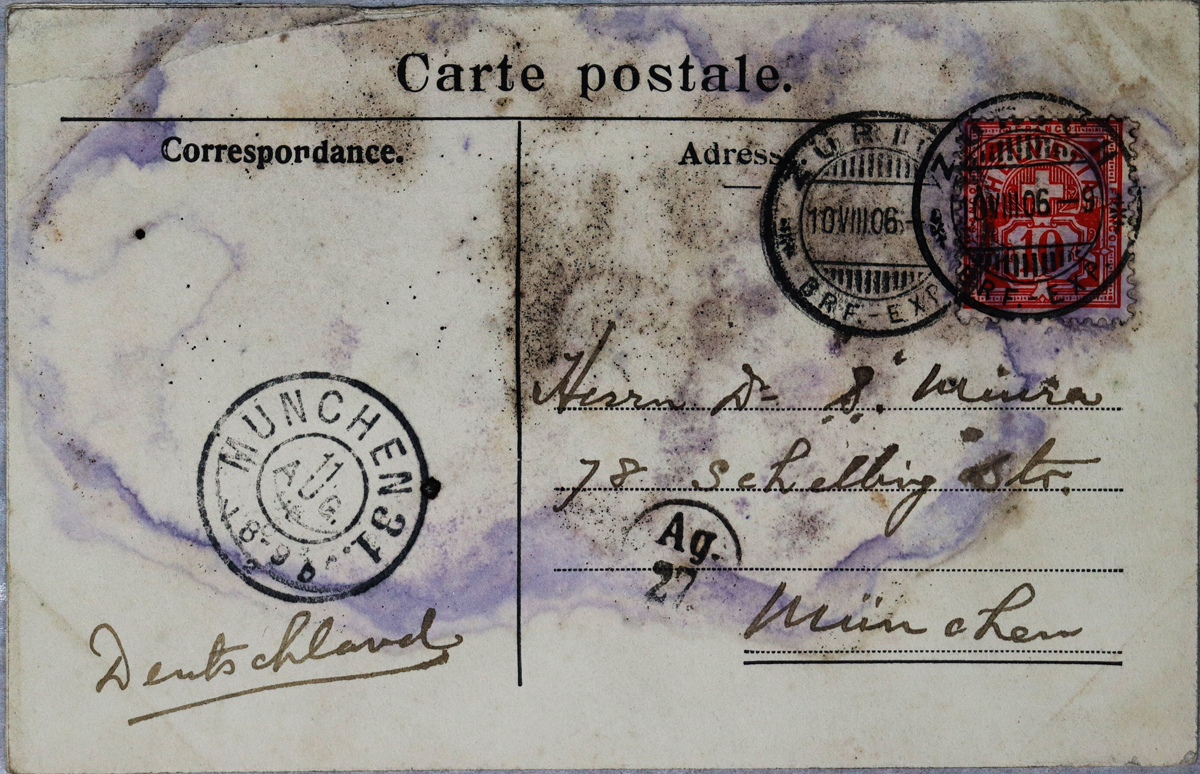 Carte postale.
Correspondance.
Adress
ZÜRI
10 VIII.06-
BRF.-EXP
VIII.06-9
BRF.-EXP
FRANCO
10
Herrn Dr S. Miura
78 Schelling Str.
Ag.
27
München
MÜNCHEN 31.
11
AUG
8-9
Deutschland